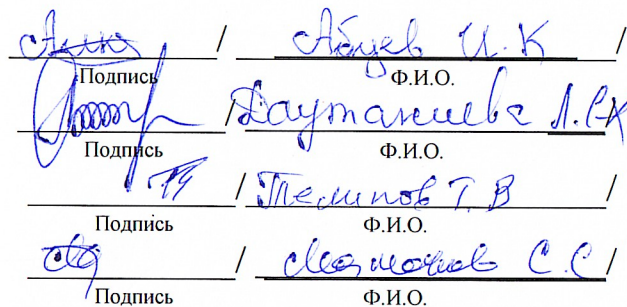 / Абуев И. К /
Подпись Ф.И.О.
/ Даутаниева Л. С-Х
Подпись Ф.И.О.
/ Темипов Т. В
Подпись Ф.И.О.
/ С. С /
Подпись Ф.И.О.